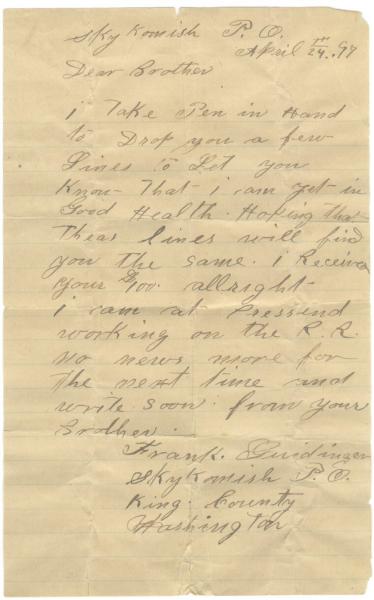 Skykomish P. O.
April 24. 97
Dear Brother
i Take Pen in Hand
to Drop you a few
Lines to Let you
Know That i am yet in
Good Health. Hoping that
theas lines will find
you the same. i Receive
your $100. allright
i am at Pressend
working on the R. R.
no news more for
the next time and
write soon. from your
Brother.
Frank. Guidinger
Skykomish P. O.
King. County
Washington